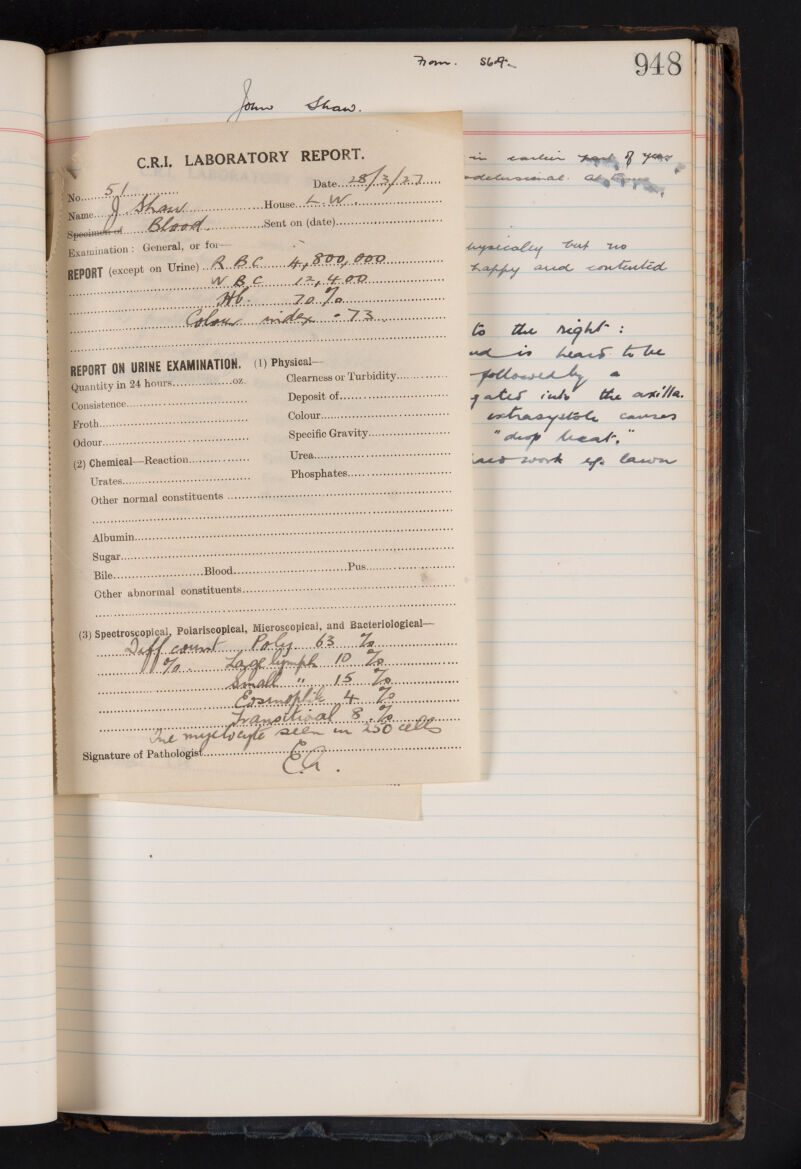 From. 869.
948
John Shaw.
in earlier part of year
delusional. At times
physically but no
happy and contented
to the right:
and is heard to be
followed by a
gated into the axilla.
extrasystole causes
"drop beat."
work up lawn
C.R.I. LABORATORY REPORT.
No. 51 Date 28/3/27
Name J Shaw House L.W.
Specimen of Blood. Sent on (date)
Examination: General, or for—
REPORT (except on Urine) R B C 4,800,000
W B C 12,400
Hb. 70 %
Colour index .73
REPORT ON URINE EXAMINATION. (1) Physical—
Quantity in 24 hours oz. Clearness or Turbidity
Consistence Deposit of
Froth Colour
Odour Specific Gravity
(2) Chemical—Reaction Urea
Urates Phosphates
Other normal constituents
Albumin
Sugar
Bile Blood Pus
Other abnormal constituents
(3) Spectroscopical, Polariscopical, Microscopical, and Bacteriological—
Diff count Poly 63 %
% Large lymph 10 %
Small " 15 %
Eosinophile 4 %
Transitional 8 %
One myelocyte seen in 250 cells
Signature of Pathologist